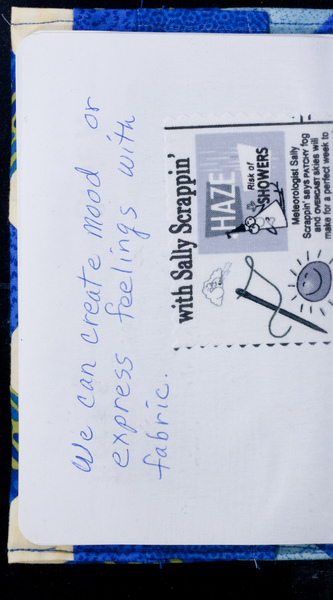 We can create mood or
express feelings with
fabric.
with Sally Scrappin'
HAZE
Risk of
SHOWERS
Meteorologist Sally
Scrappin' says PATCHY fog
and OVERCAST skies will
make for a perfect week to